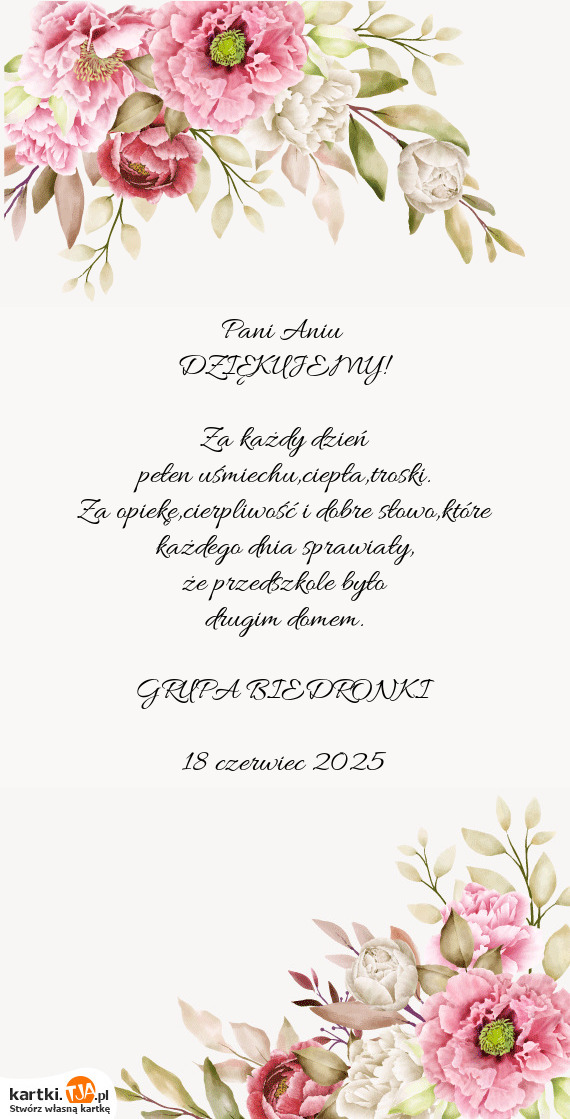 Pani Aniu
DZIĘKUJEMY!
Za każdy dzień
pełen uśmiechu,ciepła,troski.
Za opiekę,cierpliwość i dobre słowo,które
każdego dnia sprawiały,
że przedszkole było
drugim domem.
GRUPA BIEDRONKI
18 czerwiec 2025
kartki.TJA.pl
Stwórz własną kartkę